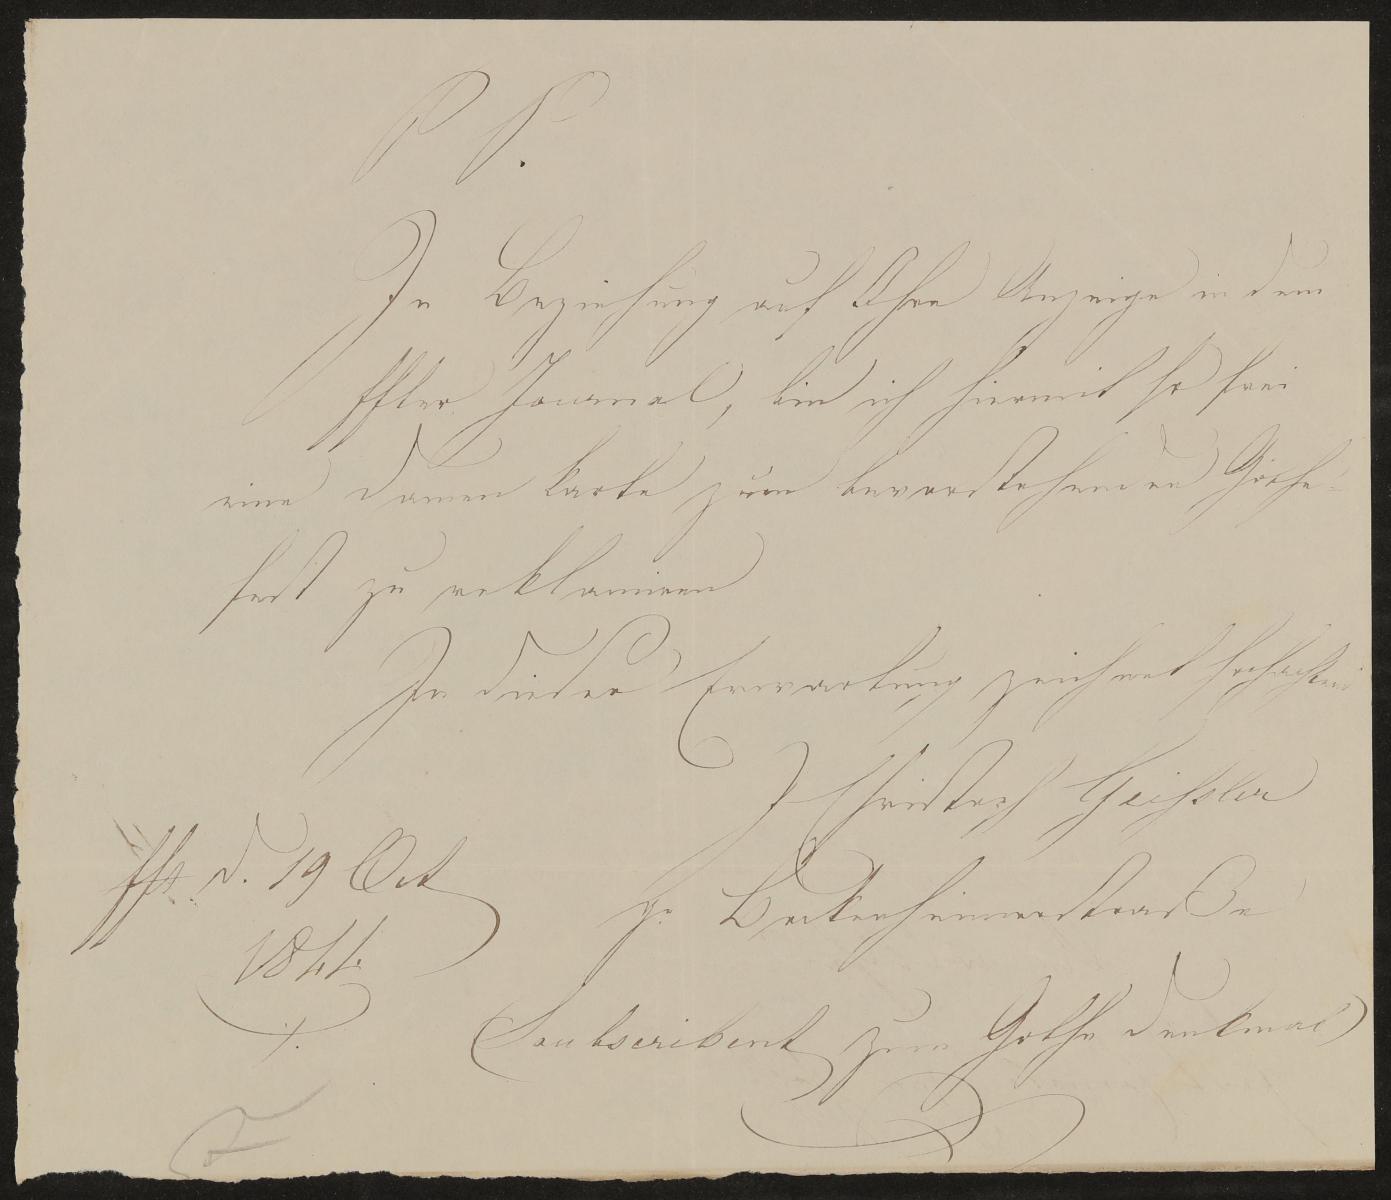 P P.
In Beziehung auf Ihre Anzeige in dem
Ffter Journal, bin ich hiermit so frei
eine Damen Karte zum bevorstehenden Göthe-
fest zu reklamiren
In dieser Erwartung zeichnet hochachtend
J Christoph Geissler
gr Bockenheimerstraße
Fft d. 19 Oct
1844.
Soubscribent zum Göthe Denkmal